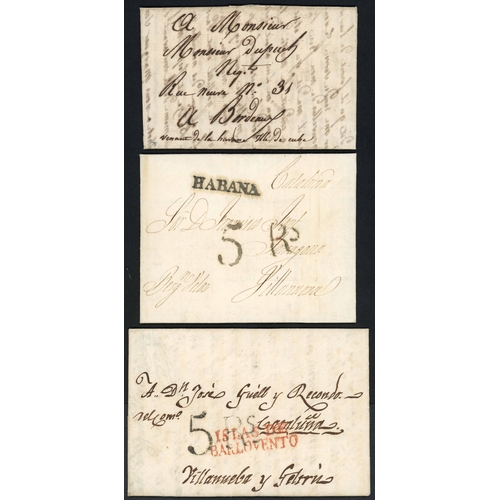 A Monsieur
Monsieur Dupuch
Negt.
Rue neuve No. 31
A Bordeaux
venant de la havane ille de cuba
HABANA
Cataluña
5 Rs
Villanueva
A Dn. José Güell y Recondo.
del como. Cataluña
5 Rs
ISLAS DE
BARLOVENTO
Villanueba y Geltrú